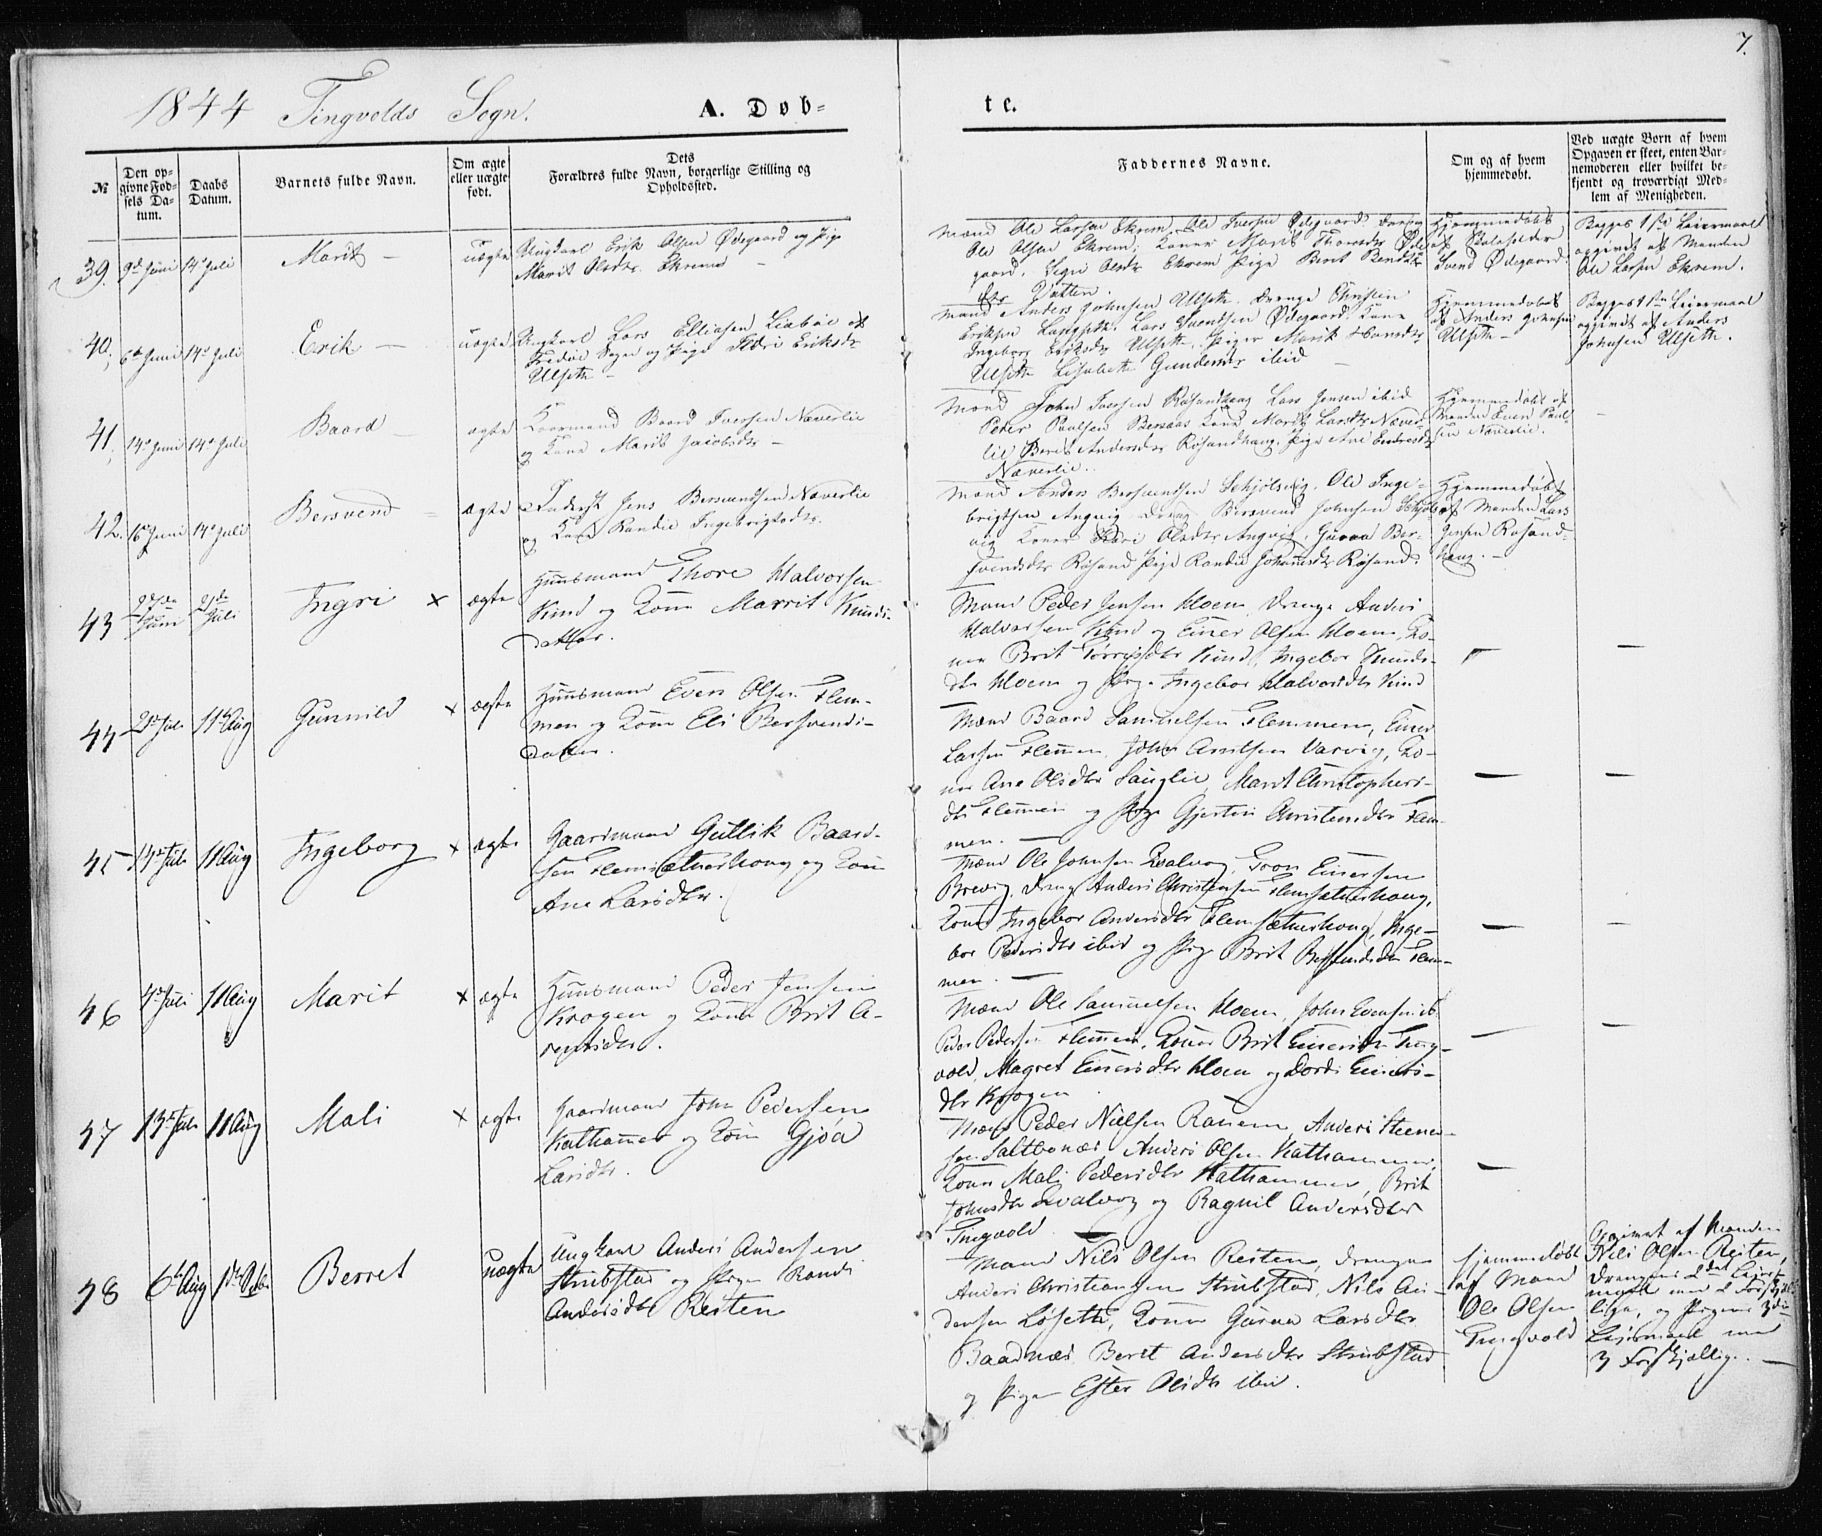 7.
1844 Tingvolds Sogn. A. Døb-
te.
№
Den op-
givne Fød-
sels Da-
tum.
Daabs
Datum.
Barnets fulde Navn.
Om ægte
eller uægte
født.
Dets
Forældres fulde Navn, borgerlige Stilling og
Opholdssted.
Faddernes Navne.
Om og af hvem
hjemmedøbt.
Ved uægte Børn af hvem
Opgaven er skeet, enten Bar-
nemoderen eller hvilket be-
kjendt og troværdigt Med-
lem af Menigheden.
39. 9de Juni 14de Juli Marit – uægte Ungkarl Erik Olsen Ødegaard og Pige
Marit Olsdtr Ekrem –
Mænd Ole Larsen Ekrem, Ole Iversen Ødegaard Dreng
Ole Olsen Ekrem; Koner Marit Øde
gaard, Sigri Olsdtr Ekrem Pige Brit
dtr Vatten.
Hjemmedøbt
af
Svend Ødegaard.
Begges 1ste Leiermaal
opgivet af Manden
Ole Larsen Ekrem.
40, 6te Juni 14de Juli Erik – uægte Ungkarl Lars Elliasen Liabøe af
Sogn og Pige Eriksdtr
Ulseth –
Mænd Anders Johnsen Ulseth. Drenge Christen
Eriksen Langseth, Lars Ødegaard, Kone
Ingebor Eriksdtr Ulseth, Piger Marit
Ulseth Lisabeth Gundersdtr ibid –
Hjemmedøbt
af Anders Johnsen
Ulseth –
Begges 1ste Leiermaal
opgivet af Anders
Johnsen Ulseth.
41, 14de Juni 14de Juli Baard – ægte Baard Iversen Naverlie
og Kone Marit Jacobsdtr –
Mænd John Iversen Røsandhaug Lars Jensen ibid
Peder Paulsen Bersaas Kone Marit Larsdtr Naver-
lie Berit Andersdtr Røsandhaug, Pige Ane
Naverlie.
Hjemmedøbt af
Manden Even Paul-
sen Naverlie.
–
42. 16de Juni 14de Juli Bersvend – ægte Inderst Jens Bersvendsen Naverlie
og Kone Randie Ingebrigtsdtr.
Mænd Anders Bersvendsen Schjølsvig, Ole Inge-
brigtsen Angvig Dreng Bersvend Johnsen Schjøls
vig Koner Olsdtr Angvig, Guraa Ber-
svendsdtr Røsand Pige Randie Johannsdtr Røsand.
Hjemmedøbt
af Manden Lars
Jensen Røsand-
haug. –
43 Juni Juli Ingri × ægte Huusmand Thore Halvorsen
Kund og Kone Marrit Knuds-
datter.
Mænd Peder Jensen Moen, Drenge Anders
Halvorsen Kund og Einer Olsen Moen, Ko-
ner Brit Kund, Ingebor Knuds-
dtr Moen og Pige Ingebor Halvorsdtr Kund
– –
44 21de Juli 11te Aug Gunnild × ægte Huusmand Even Olsen Flem-
men og Kone Eli Bersvends-
datter.
Mænd Baard Samuelsen Flemmen, Einer
Larsen Flemmen, John Arntsen Varvig, Ko-
ner Ane Olsdtr Sauglie, Marit Christophers-
dtr Flemmen og Pige Gjertru Christensdtr Flem-
men. –
– –
45 14de Juli 11 Aug Ingeborg × ægte Gaardmand Gullik Baard-
sen Flemsætherhoug og Kone
Ane Larsdtr.
Mænd Ole Johnsen Qvalvog, Einersen
Brevig, Dreng Anders Christensen Flemsætherhoug,
Koner Ingebor Andersdtr Flemsætherhoug, Inge-
bor Pedersdtr ibid og Pige Brit Bersvendsdtr Flem-
men. –
– –
46 4de Juli 11 Aug Marit × ægte Huusmand Peder Jensen
Krogen og Kone Brit A-
rentsdtr.
Mænd Ole Samuelsen Moen, John Evensen ib.
Peder Pedersen Flemmen, Koner Brit Einersdtr Ting-
vold, Magret Einersdtr Moen og Dordi Einers-
dtr Krogen
– –
47 13de Juli 11 Aug Mali × ægte Gaardmand John Pedersen
Kathammer og Kone Gjøa
Larsdtr.
Mænd Peder Nielsen Ranem, Anders Steene-
sen Saltbonæs, Anders Olsen Kathammer,
Koner Mali Pedersdtr Kathammer, Brit
Johnsdtr Qvalvog og Ragnil Andersdtr
Tingvold. –
–
48 6te Aug 1ste Septbr Berret uægte Ungkarl Anders Andersen
Strubstad og Pige Randi
Andersdtr Reiten
Mænd Nils Olsen Reiten, Drenge
Anders Christiansen Strubstad, Nils An-
dersen Løseth, Koner Guraa Larsdtr
Baadnæs, Berit Andersdtr Strubstad
og Pige Ester Olsdtr ibid.
Hjemmedøbt
af Mand
Ole Olsen
Tingvold
Opgivet af Manden
Nils Olsen Reiten,
Drengens 2det Leier-
maal med 2 Forskjel-
lige, og Pigens 3die
Leiermaal med
3 Forskjællige. –